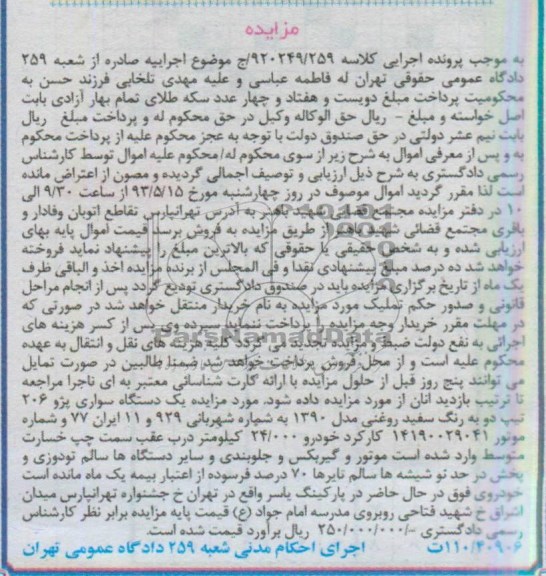 مزایده
به موجب پرونده اجرایی کلاسه ۹۲۰۲۴۹/۲۵۹/ج موضوع اجراییه صادره از شعبه ۲۵۹
دادگاه عمومی حقوقی تهران له فاطمه عباسی و علیه مهدی تلخابی فرزند حسن به
محکومیت پرداخت مبلغ دویست و هفتاد و چهار عدد سکه طلای تمام بهار آزادی بابت
اصل خواسته و مبلغ - ریال حق الوکاله وکیل در حق محکوم له و پرداخت مبلغ ریال
بابت نیم عشر دولتی در حق صندوق دولت با توجه به عجز محکوم علیه از پرداخت محکوم
به و پس از معرفی اموال به شرح زیر از سوی محکوم له/محکوم علیه اموال توسط کارشناس
رسمی دادگستری به شرح ذیل ارزیابی و توصیف اجمالی گردیده و مصون از اعتراض مانده
است لذا مقرر گردید اموال موصوف در روز چهارشنبه مورخ ۹۳/۵/۱۵ از ساعت ۹/۳۰ الی
۱۰ در دفتر مزایده مجتمع قضایی شهید باهنر به آدرس تهرانپارس تقاطع اتوبان وفادار و
باقری مجتمع قضائی شهید باهنر از طریق مزایده به فروش برسد قیمت اموال پایه بهای
ارزیابی شده و به شخص حقیقی یا حقوقی که بالاترین مبلغ را پیشنهاد نماید فروخته
خواهد شد ده درصد مبلغ پیشنهادی نقدا و فی المجلس از برنده مزایده اخذ و الباقی ظرف
یک ماه از تاریخ برگزاری مزایده باید در صندوق دادگستری تودیع گردد پس از انجام مراحل
قانونی و صدور حکم تملیک مورد مزایده به نام خریدار منتقل خواهد شد در صورتی که
در مهلت مقرر خریدار وجه مزایده را پرداخت ننماید سپرده وی پس از کسر هزینه های
اجرائی به نفع دولت ضبط و مزایده تجدید می گردد کلیه هزینه های نقل و انتقال به عهده
محکوم علیه است و از محل فروش پرداخت خواهد شد ضمنا طالبین در صورت تمایل
می توانند پنج روز قبل از حلول مزایده با ارائه کارت شناسائی معتبر به ای ناجرا مراجعه
تا ترتیب بازدید انان از مورد مزایده داده شود. مورد مزایده یک دستگاه سواری پژو ۲۰۶
تیپ دو به رنگ سفید روغنی مدل ۱۳۹۰ به شماره شهربانی ۹۳۹ و ۱۱ ایران ۷۷ و شماره
موتور ۱۴۱۹۰۰۲۹۰۴۱ کارکرد خودرو ۲۴/۰۰۰ کیلومتر درب عقب سمت چپ خسارت
متوسط وارد شده است موتور و گیربکس و جلوبندی و سایر دستگاه ها سالم تودوزی و
پخش در حد نو شیشه ها سالم تایرها ۷۰ درصد فرسوده از اعتبار بیمه یک ماه مانده است
خودروی فوق در حال حاضر در پارکینگ یاسر واقع در تهران خ جشنواره تهرانپارس میدان
اشراق خ شهید فتاحی روبروی مدرسه امام جواد (ع) قیمت پایه مزایده برابر نظر کارشناس
رسمی دادگستری -/۲۵۰/۰۰۰/۰۰۰ ریال برآورد قیمت شده است.
۱۱۰/۴۰۹۰۶ت اجرای احکام مدنی شعبه ۲۵۹ دادگاه عمومی تهران
ParsNamadData